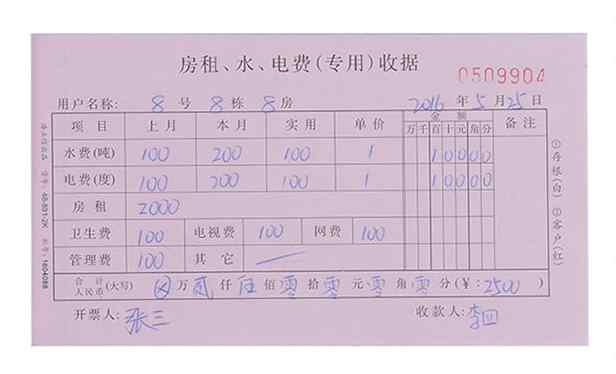 房租、水、电费(专用)收据
0509904
用户名称: 8 号 8 栋 8 房 2016 年 5 月 25 日
项 目 上 月 本 月 实 用 单 价 金 额 备 注
万 千 百 十 元 角 分
水费(吨) 100 200 100 1 1 0 0 0 0
电费(度) 100 200 100 1 1 0 0 0 0
房 租 2000
卫生费 100 电视费 100 网费 100
管理费 100 其 它
合 计
人民币 (大写) ⊗ 万 贰 仟 伍 佰 零 拾 零 元 零 角 零 分 (¥: 2500 )
开票人: 张三 收款人: 李四
①存根(白) ②客户(红)
48-891-2K
1604088